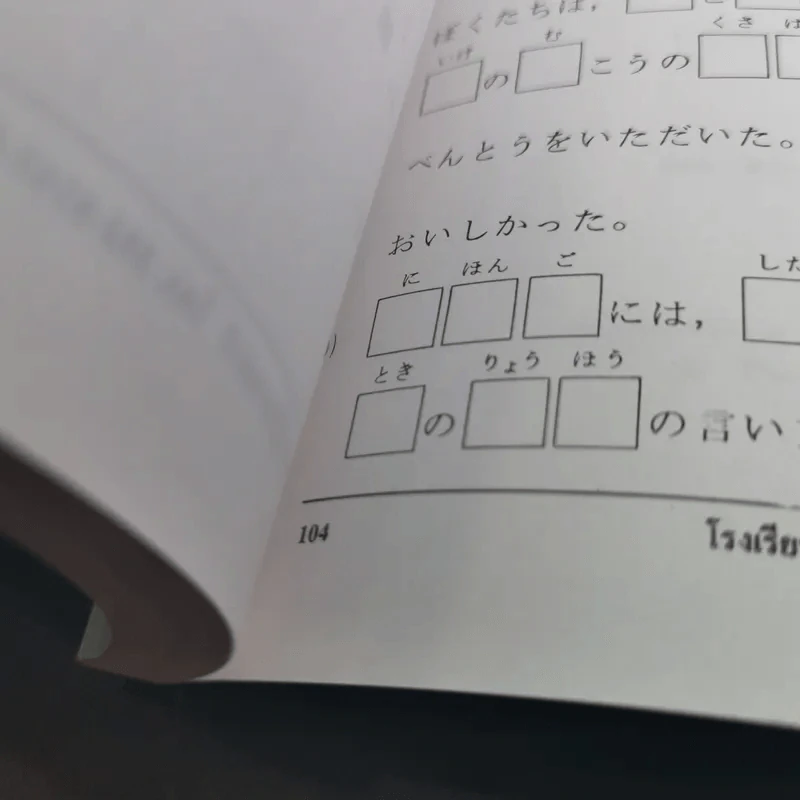 ぼくたちは、
いけ む くさ
の こうの
べんとうをいただいた。
おいしかった。
に ほん ご
には、
とき りょう ほう
の の言い
104
โรงเรีย